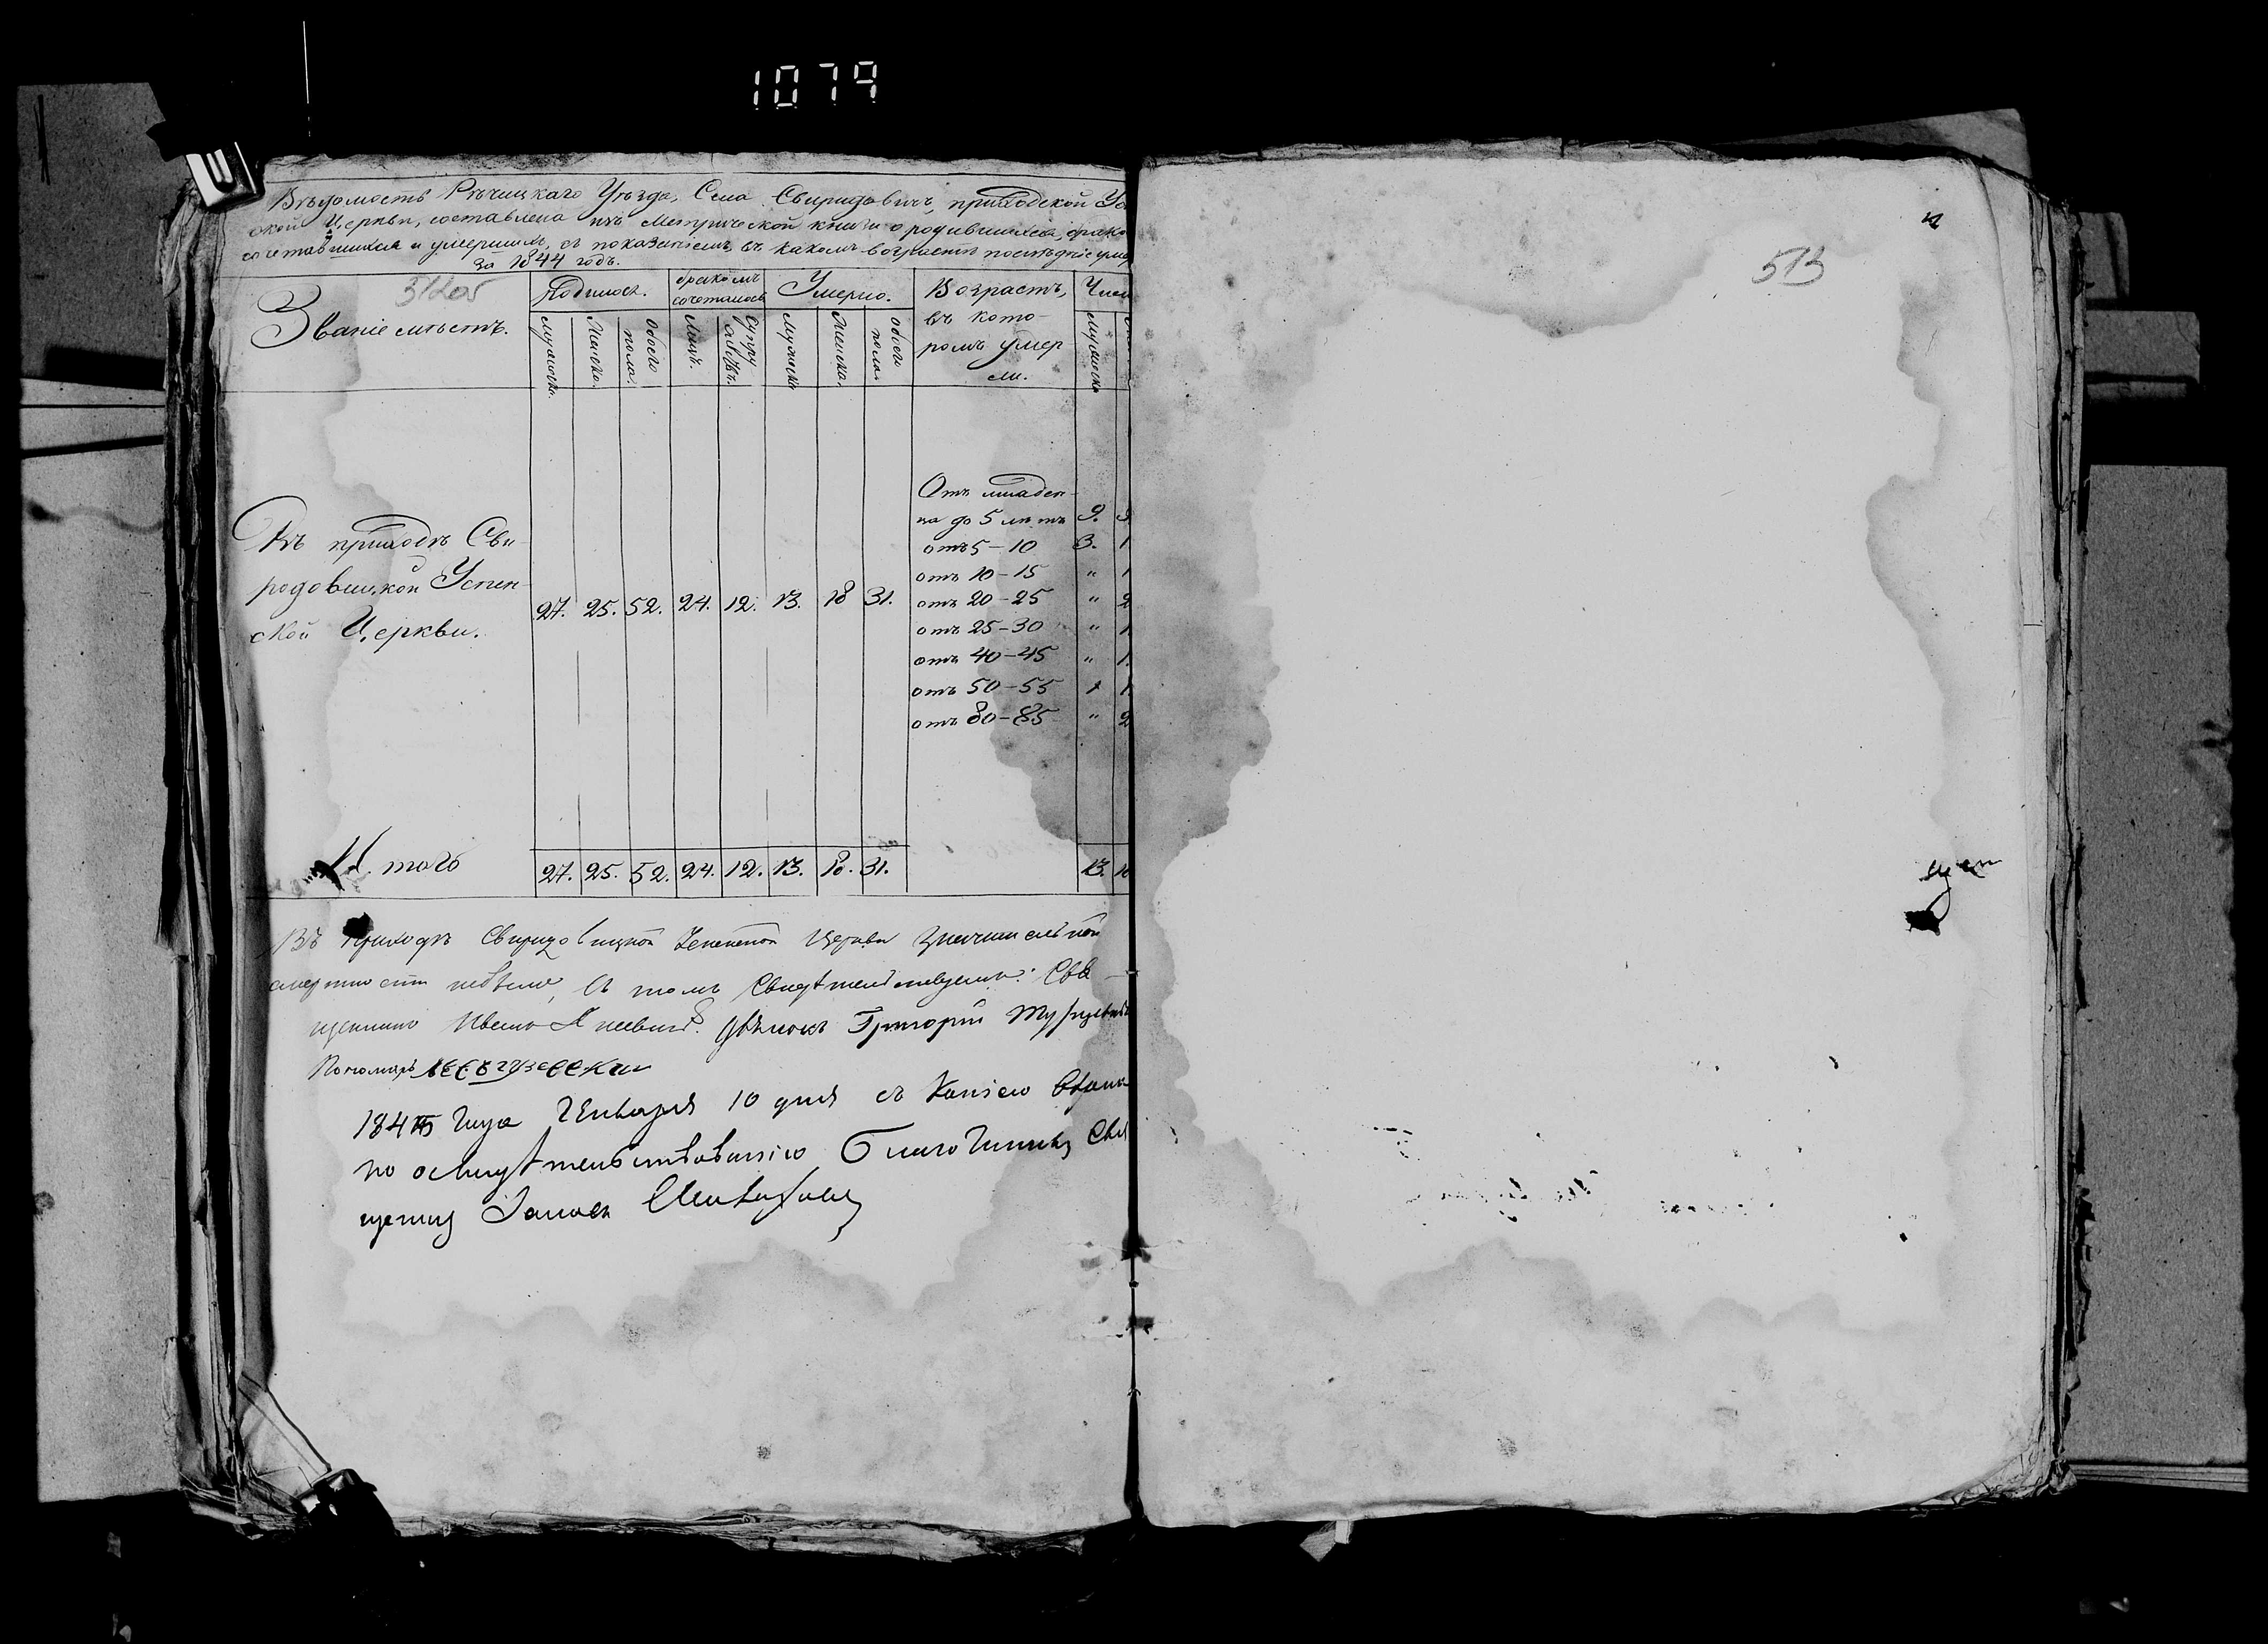 1079
Вѣдомость Рѣчицкаго Уѣзда, Села Свиридовичъ, приходской Ус
ской Церкви, составлена изъ Метрической книги о родившихся, брако
сочетавшихся и умершихъ, съ показаніемъ, въ какомъ возрастѣ послѣдніе умер
за 1844 годъ.
Званіе мѣстъ.
Родилось. бракомъ сочеталось Умерло. Возрастъ, въ кото-ромъ умер ли. Числ
Мужеска. Женска. обоего пола. Лицъ. Супру жествъ. Мужеска Женска. обоего пола. Мужеска
Въ приходѣ Сви-
родовицкой Успен-
ской Церкви.
27. 25. 52. 24. 12. 13. 18 31.
Отъ младен-
ца до 5 лѣтъ 9. 9
отъ 5-10 3. 1
отъ 10-15 " 1
отъ 20-25 " 2
отъ 25-30 " 1
отъ 40-45 " 1.
отъ 50-55 1 1
отъ 80-85 " 2
И того 27. 25. 52. 24. 12. 13. 18. 31. 13. 18
Въ приходѣ Свиридовицкой Успенской Церкви значительной
смертности небыло, въ томъ свидѣтельствуемъ: Свя-
щенникъ Иванъ Дьячокъ Григорій
Пономарь
1845 Года Генваря 10 дня съ Копіею
по освидѣтельствованію Благочинный Свя
щенник
513